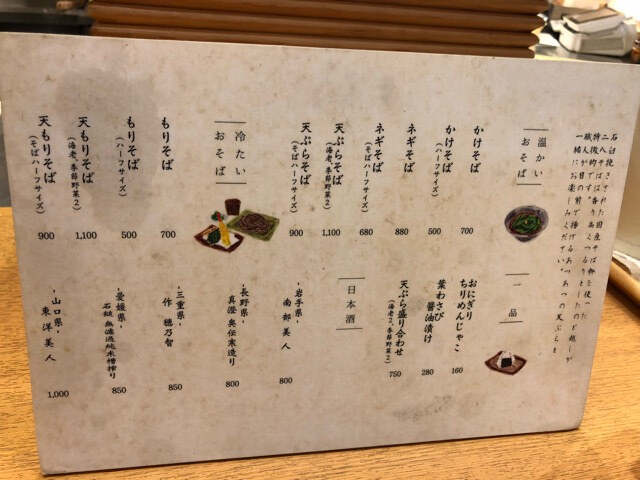 石臼挽きされた国産そば粉を使った
二八そばは香りあとつるりとしたのど越しが
特徴的です。
職人が目の前で揚げるあつあつの天ぷらと
一緒にお楽しみください。
温かい
おそば
かけそば
700
かけそば
(ハーフサイズ)
500
ネギそば
880
ネギそば
(ハーフサイズ)
680
天ぷらそば
(海老、季節野菜2)
1,100
天ぷらそば
(そばハーフサイズ)
900
冷たい
おそば
もりそば
700
もりそば
(ハーフサイズ)
500
天もりそば
(海老、季節野菜2)
1,100
天もりそば
(そばハーフサイズ)
900
一品
おにぎり
ちりめんじゃこ
160
葉わさび
醤油漬け
280
天ぷら盛り合わせ
(海老2、季節野菜2)
750
日本酒
-岩手県-
南部美人
800
-長野県-
真澄 奥伝寒造り
800
-三重県-
作 穂乃智
850
-愛媛県-
石鎚 無濾過純米槽搾り
850
-山口県-
東洋美人
1,000